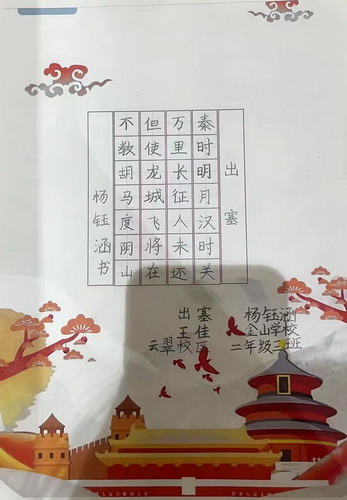 出塞
秦时明月汉时关
万里长征人未还
但使龙城飞将在
不教胡马度阴山
杨钰涵书
出塞 杨钰涵
王佳 金山学校
云翠校区 二年级三班